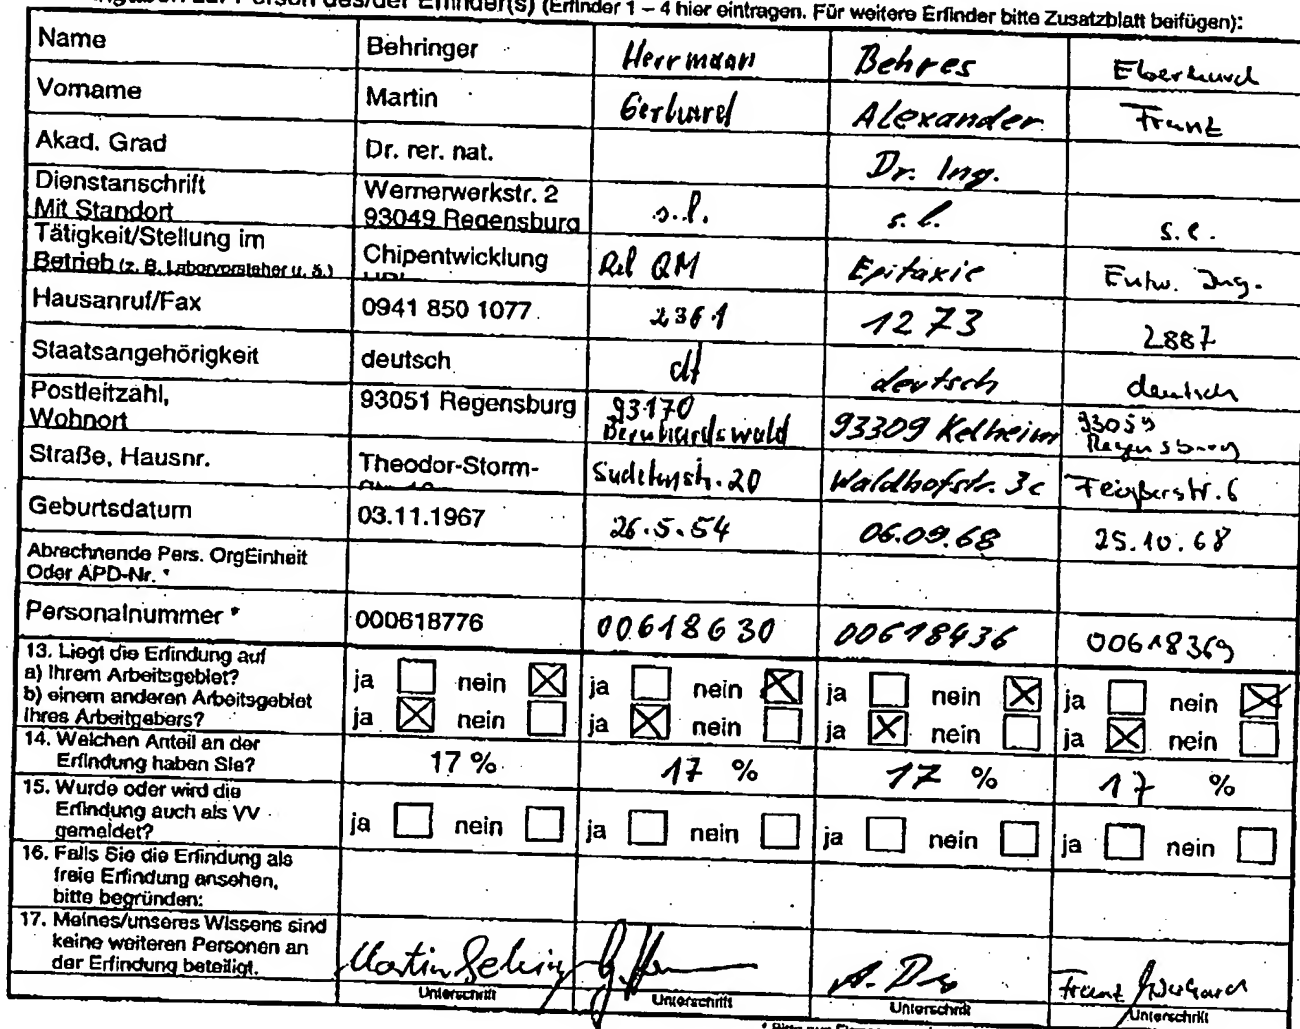 zur Person des/der Erfinder(s) (Erfinder 1 – 4 hier eintragen. Für weitere Erfinder bitte Zusatzblatt beifügen):
Name Behringer Herrmann Behres Eberhard
Vorname Martin Gerhard Alexander Franz
Akad. Grad Dr. rer. nat. Dr. Ing.
Dienstanschrift
Mit Standort
Wernerwerkstr. 2
93049 Regensburg
s.l. s.l. s.l.
Tätigkeit/Stellung im
Betrieb (z. B. Laborvorsteher u. ä.)
Chipentwicklung
Rel QM Epitaxie Entw. Ing.
Hausanruf/Fax 0941 850 1077 2361 1273 2887
Staatsangehörigkeit deutsch dt deutsch deutsch
Postleitzahl,
Wohnort
93051 Regensburg
93170
Bernhardswald
93309 Kelheim
93059
Regensburg
Straße, Hausnr. Theodor-Storm-
Sudetenstr. 20 Waldhofstr. 3c
Geburtsdatum 03.11.1967 26.5.54 06.09.68 25.10.68
Abrechnende Pers. OrgEinheit
Oder APD-Nr. *
Personalnummer * 000618776 00618630 00618436 00618369
13. Liegt die Erfindung auf
a) Ihrem Arbeitsgebiet?
b) einem anderen Arbeitsgebiet
Ihres Arbeitgebers?
ja nein ja nein ja nein ja nein
ja nein ja nein ja nein ja nein
14. Welchen Anteil an der
Erfindung haben Sie?
17 % 17 % 17 % 17 %
15. Wurde oder wird die
Erfindung auch als VV
gemeldet?
ja nein ja nein ja nein ja nein
16. Falls Sie die Erfindung als
freie Erfindung ansehen,
bitte begründen:
17. Meines/unseres Wissens sind
keine weiteren Personen an
der Erfindung beteiligt.
Martin Behringer Franz Eberhard
Unterschrift Unterschrift Unterschrift Unterschrift